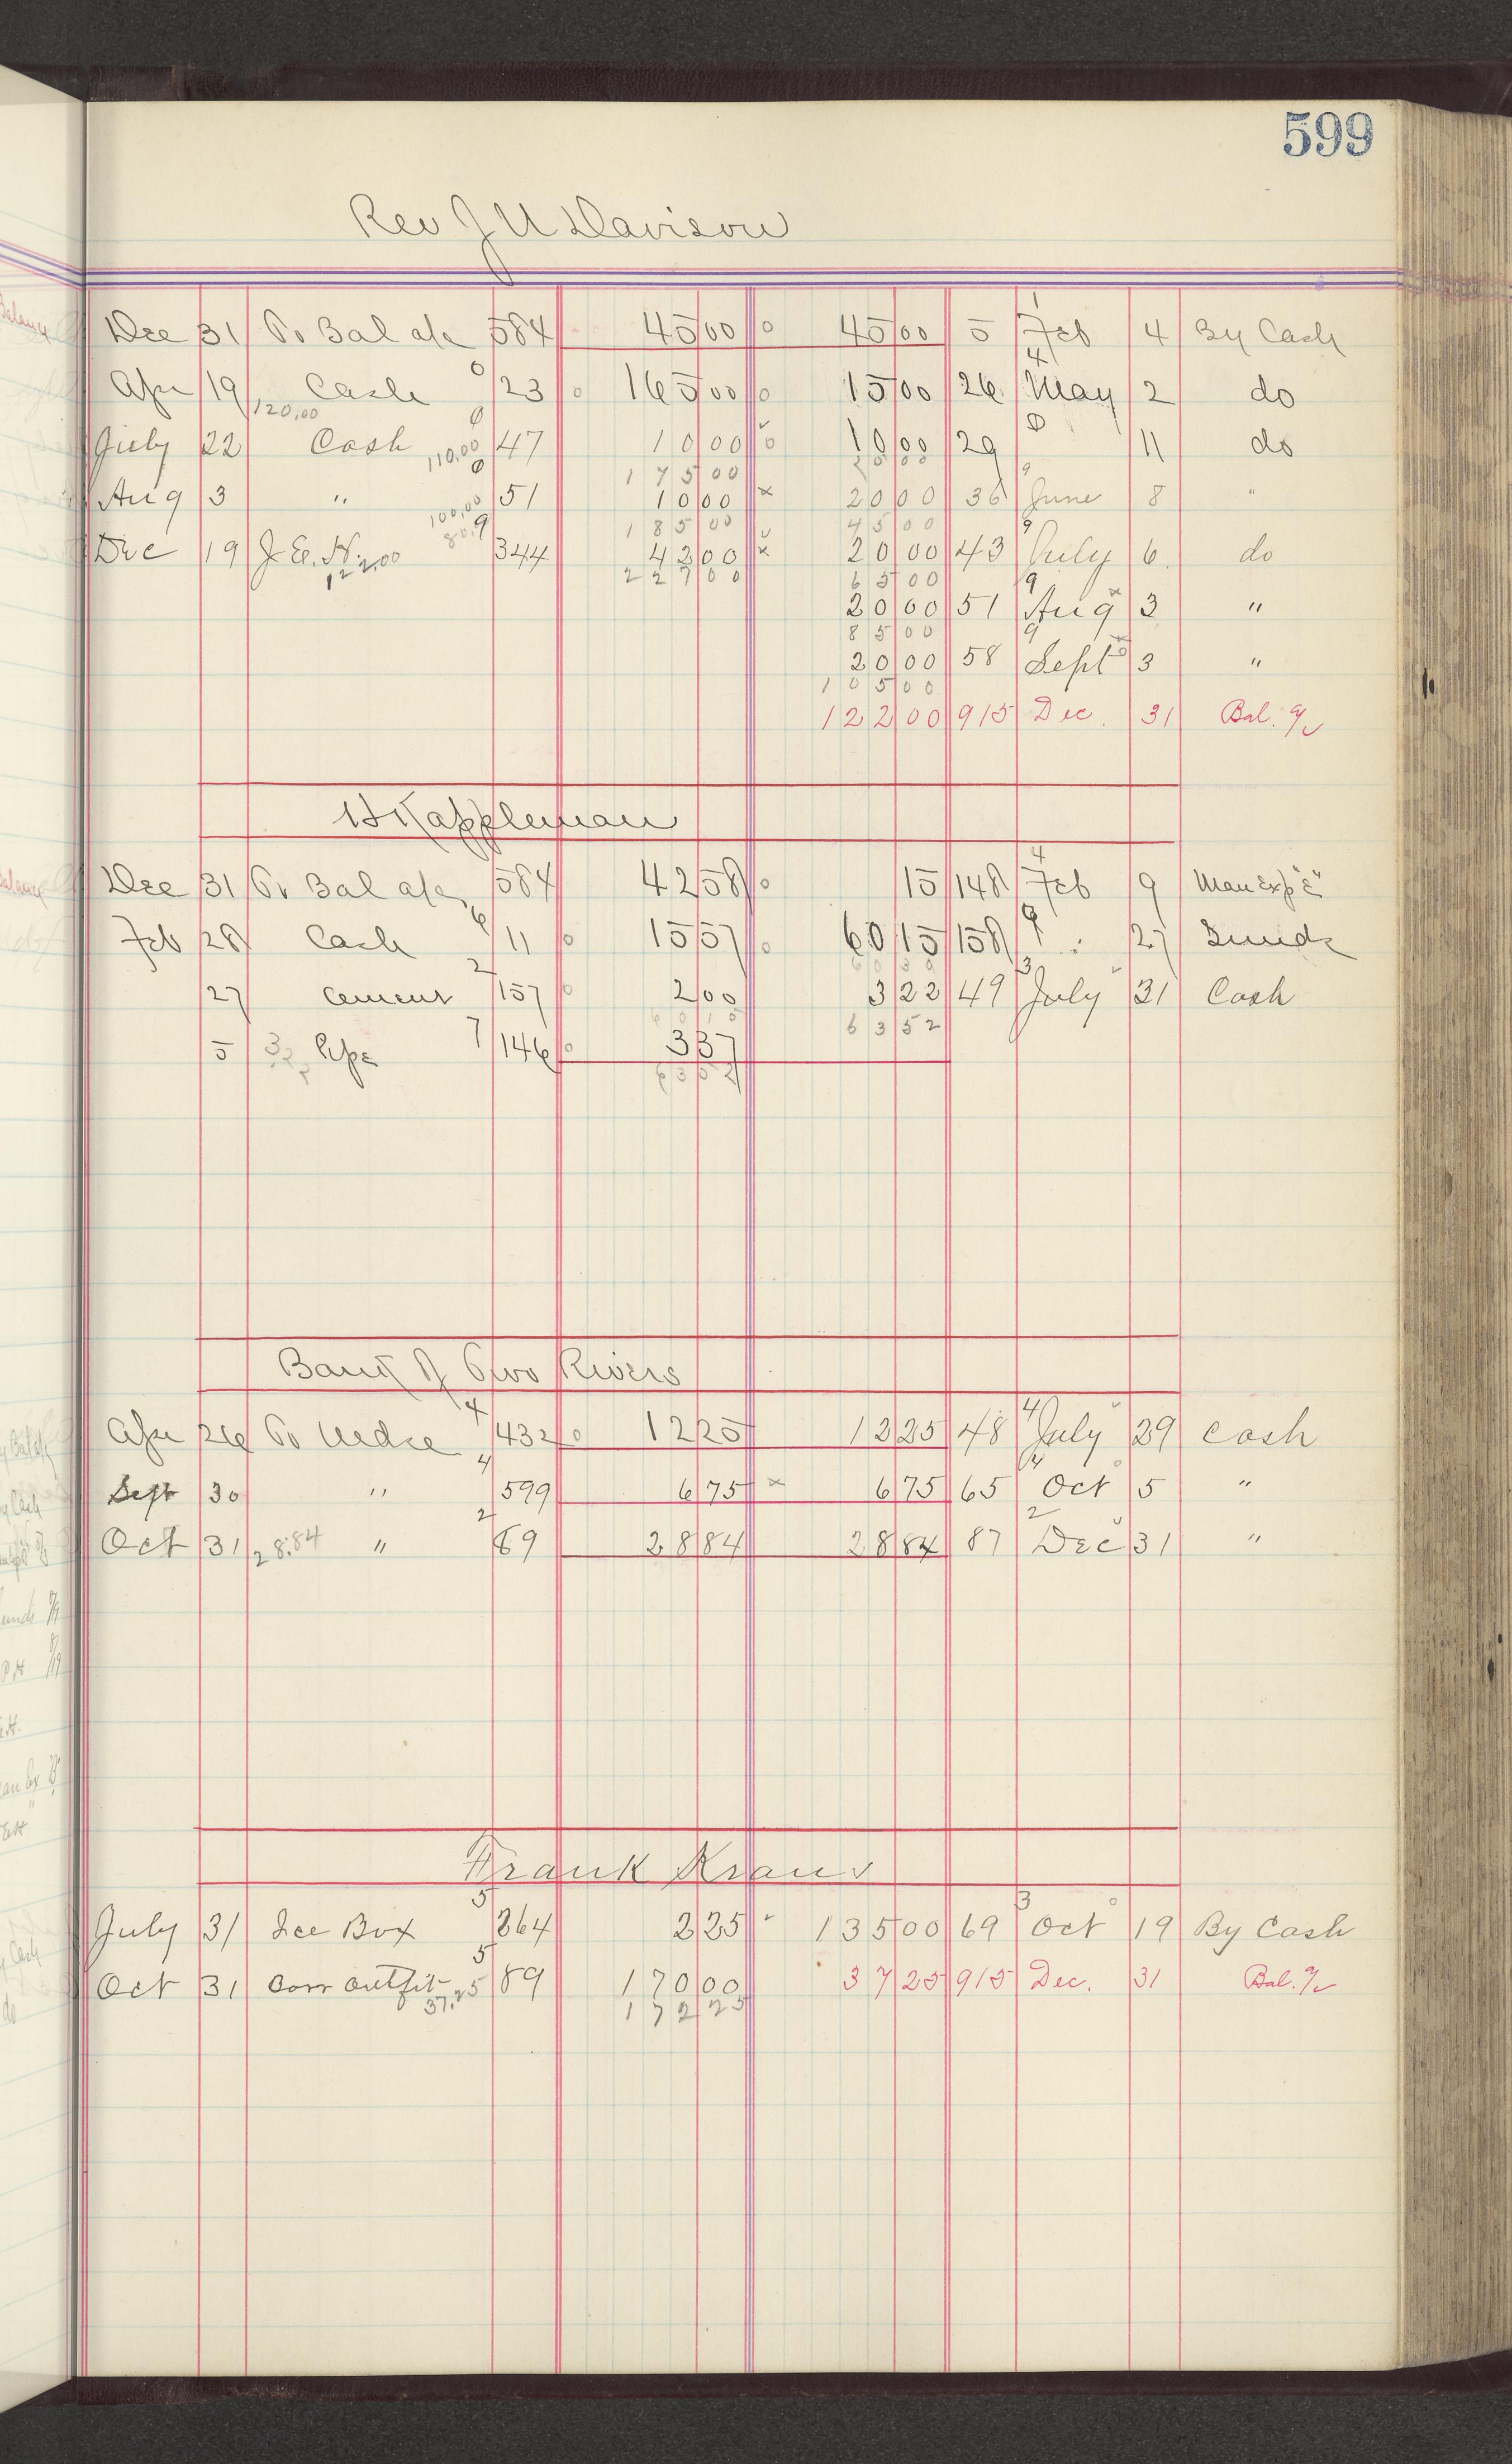 599
Rev J U Davison
Dec 31 To Bal a/c 584 45 00 45 00 5 Feb 4 By Cash
Apr 19 120.00 Cash 23 165 00 15 00 26 May 2 do
July 22 Cash 110.00 47 10 00 10 00 29 11 do
175 00 25 00
Aug 3 " 100.00 51 10 00 20 00 36 June 8 "
185 00 45 00
Dec 19 J. E. H. 122.00 344 42 00 20 00 43 July 6 do
227 00 65 00
20 00 51 Aug 3 "
85 00
20 00 58 Sept 3 "
105 00
122 00 915 Dec. 31 Bal. a/c
H Kappleman
Dec 31 To Bal a/c 584 42 58 15 148 Feb 9 Man Exp "E"
Feb 28 Cash 11 15 57 60 15 158 " 27 Sunds
27 Cement 157 2 00 3 22 49 July 31 Cash
60 15 63 52
5 Pipe 146 3 37
63 52
Bank of Two Rivers
Apr 26 To Mdse 432 12 25 12 25 48 July 29 Cash
Sept 30 " 599 6 75 6 75 65 Oct 5 "
Oct 31 28.84 " 69 28 84 28 84 87 Dec 31 "
Frank Kraus
July 31 Ice Box 364 2 25 135 00 69 Oct 19 By Cash
Oct 31 Corr outfit 37.25 89 170 00 37 25 915 Dec. 31 Bal. a/c
172 25